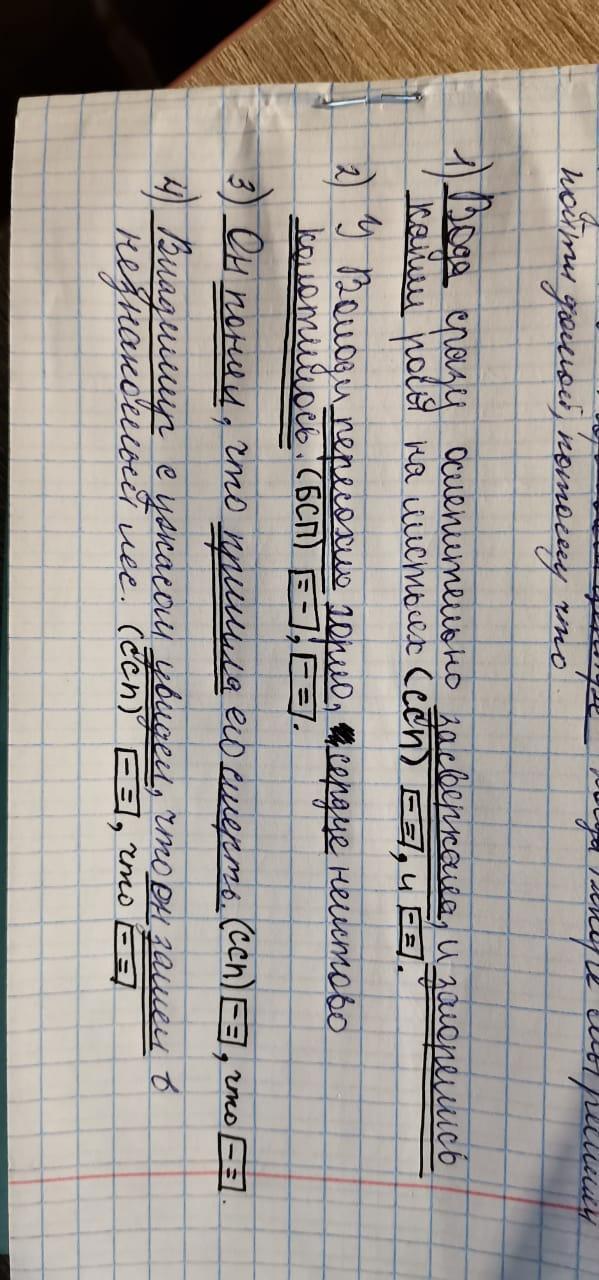 тогда
мы решили
пойти домой, потому что
1) Вода сразу ослепительно засверкала, и загорелись
капли росы на листьях (ССП) [– =], и [– =].
2) У Володи пересохло горло, сердце неистово
колотилось. (БСП) [= –], [– =].
3) Он понял, что пришла его смерть (ССП) [– =], что [– =].
4) Владимир с ужасом увидел, что он заехал в
незнакомый лес. (ССП) [– =], что [– =]